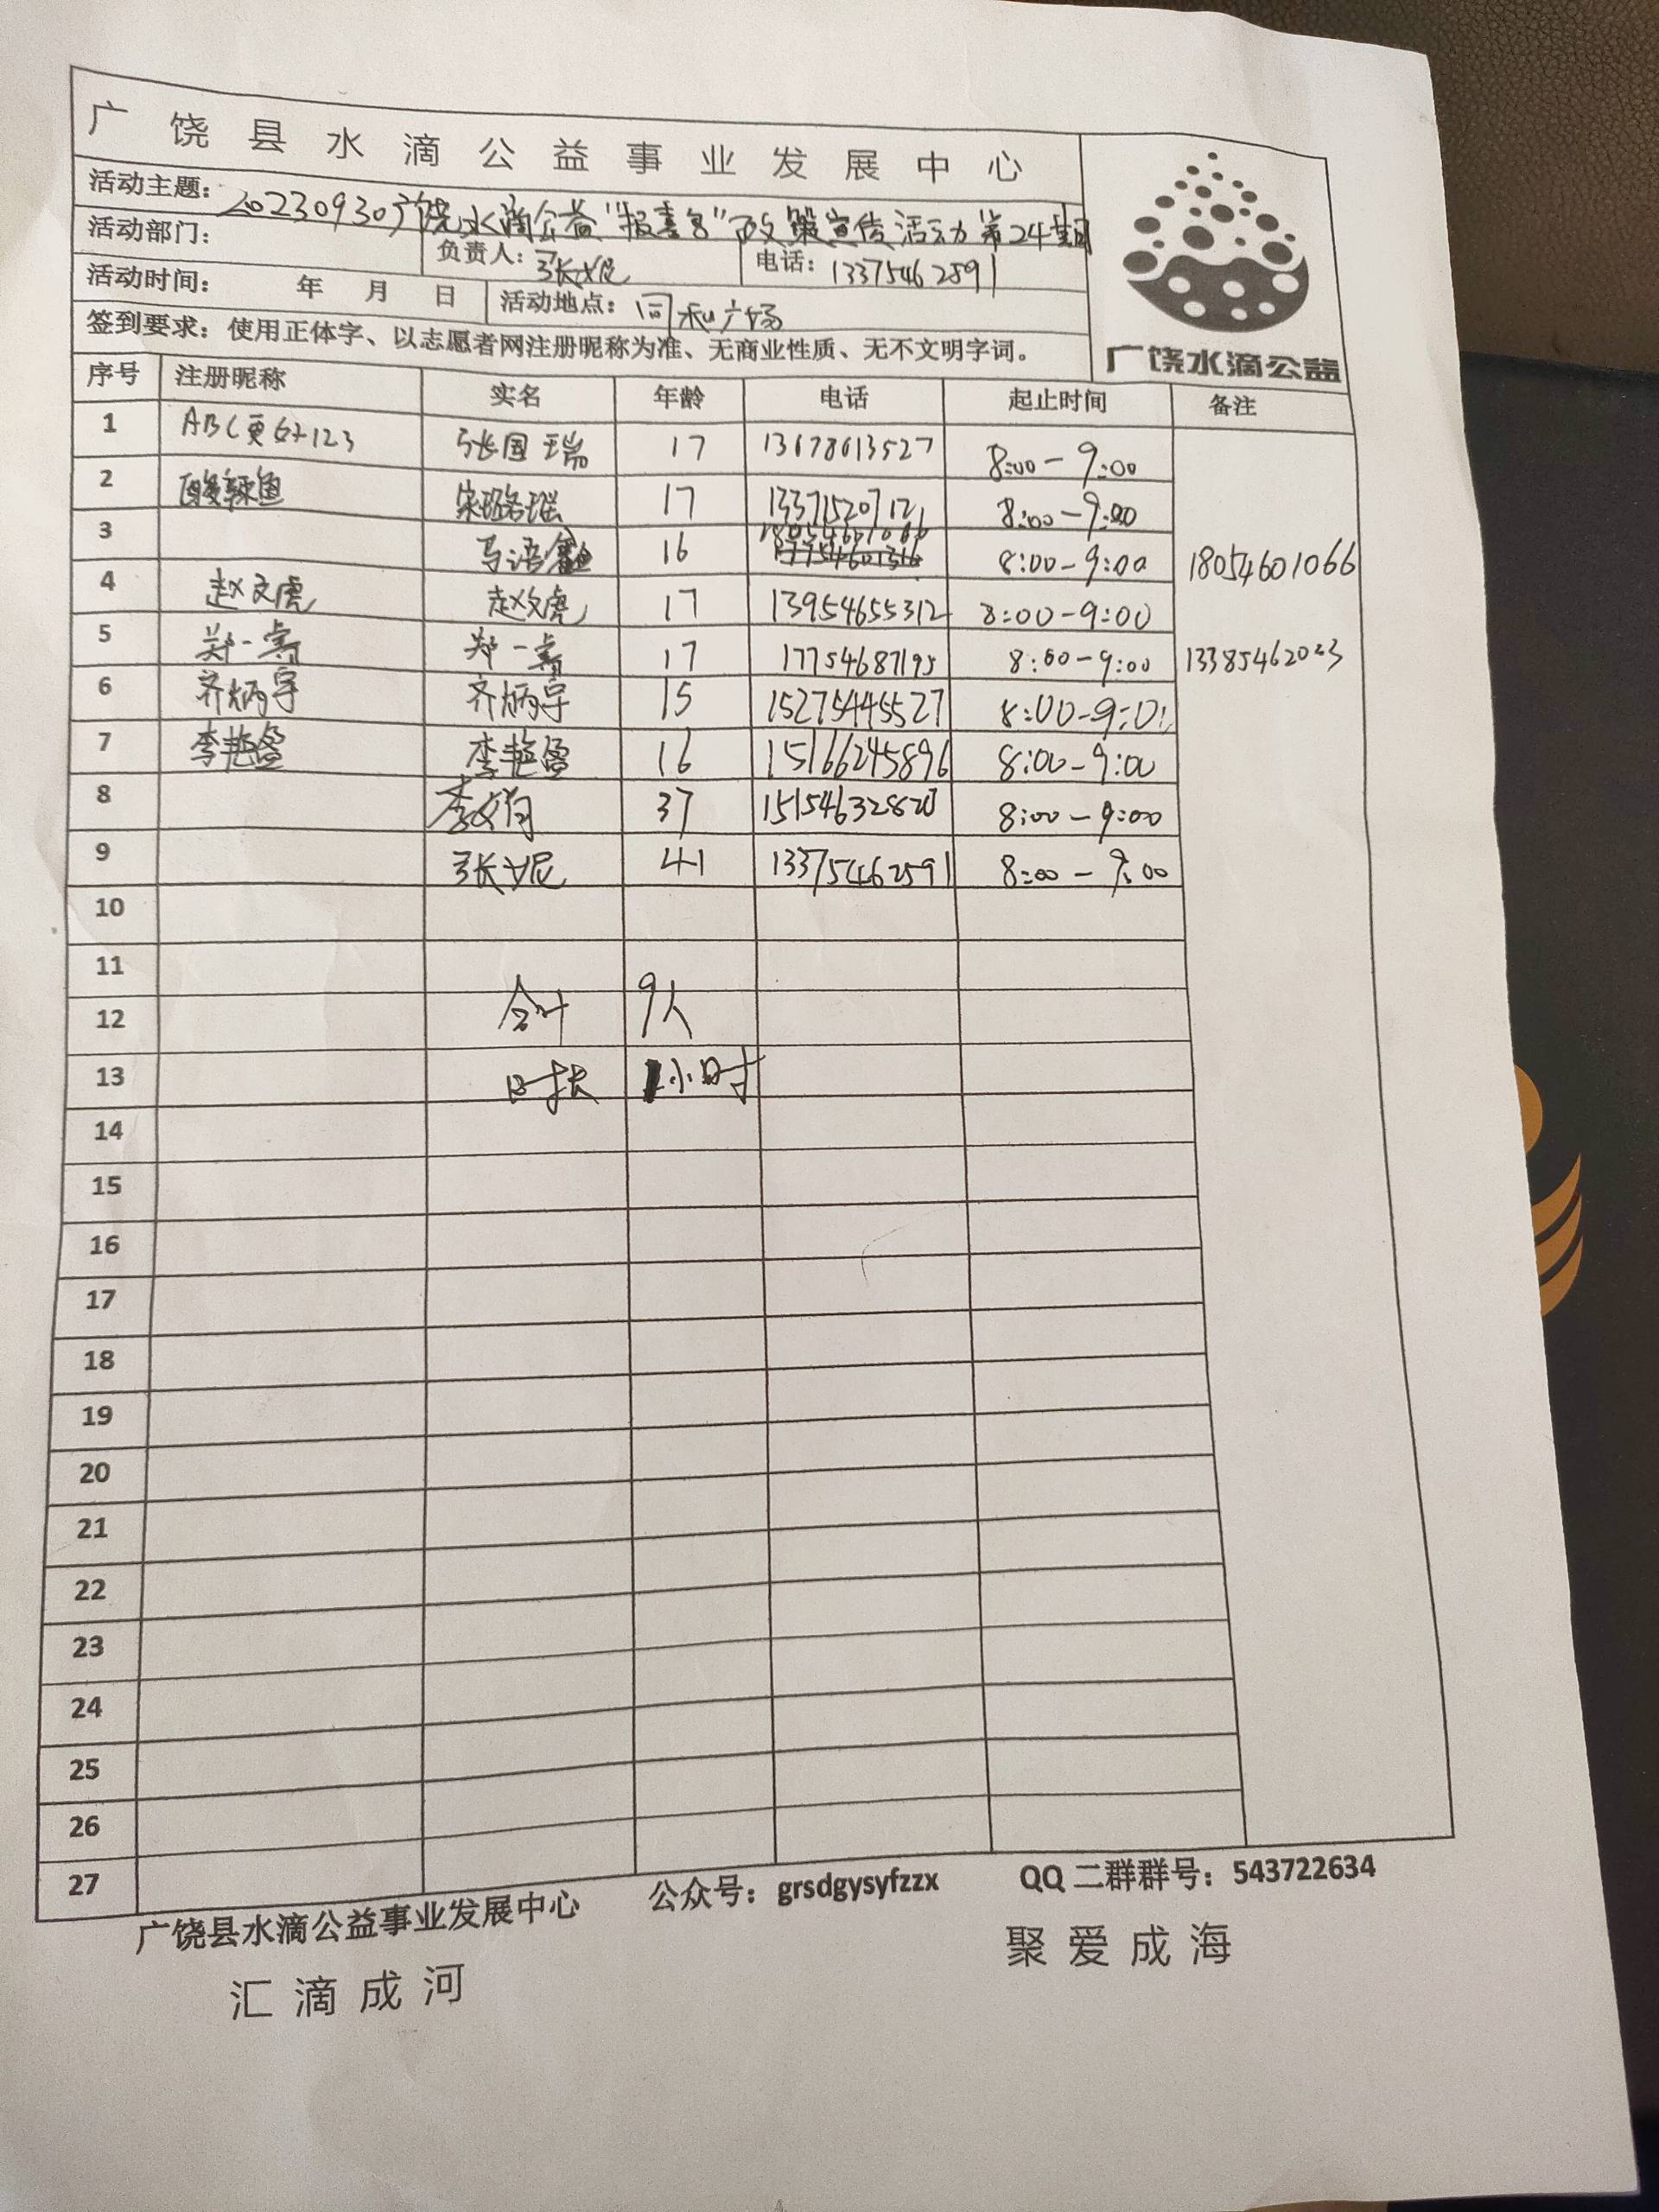 广饶县水滴公益事业发展中心
活动主题：20230930广饶水滴公益"报喜鸟"政策宣传活动第24期
广饶水滴公益
活动部门： 负责人：张妮 电话：13375462591
活动时间： 年 月 日 活动地点：同和广场
签到要求：使用正体字、以志愿者网注册昵称为准、无商业性质、无不文明字词。
序号 注册昵称 实名 年龄 电话 起止时间 备注
1 ABC更好123 张国瑞 17 13678613527 8:00-9:00
2 酸辣鱼 宋璐瑶 17 13371520712 8:00-9:00
3 马语 16 18054601066 8:00-9:00 18054601066
4 赵文虎 赵文虎 17 13954655312 8:00-9:00
5 郑一 郑一 17 17754687195 8:00-9:00
6 齐炳宇 齐炳宇 15 15275445527 8:00-9:00
7 李艳盈 李艳盈 16 15166245896 8:00-9:00
8 李文 37 8:00-9:00
9 张妮 41 13375462591 8:00-9:00
10
11
12 合计 9人
13 时长 1小时
14
15
16
17
18
19
20
21
22
23
24
25
26
27
广饶县水滴公益事业发展中心 公众号：grsdgysyfzzx QQ二群群号：543722634
汇滴成河 聚爱成海